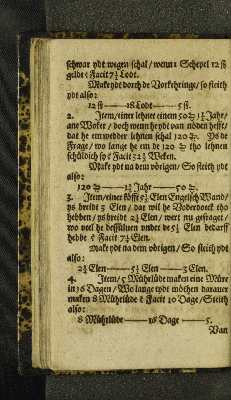 schwar ydt wegen schal / wenn 1 Schepel 12 ß
gelde? Facit 7½ Lodt.
Make ydt dorch de Vorkehringe / so steith
ydt also:
12 ß — 18 Lodt — 5 ß.
2. Item / einer lehnet einem 50 1½ Jahr /
ane Woker / doch wenn he ydt van nöden hefft /
dat he em wedder lehnen schal 120 . Ys de
Frage / wo lange he em de 120 tho lehnen
schüldich sy? Facit 32½ Weken.
Make ydt na dem vörigen / So steith ydt
also:
120 — 1½ Jahr — 50 .
3. Item / einer köfft 5½ Elen Engelsch Wand /
ys breidt 3 Elen / dar wil he Voderdoeck tho
hebben / ys breidt 2¼ Elen / wert nu gefraget /
wo veel he dessüluen vnder de 5½ Elen bedarff
hebbe? Facit 7⅓ Elen.
Make ydt na dem vörigen / So steith ydt
also:
2¼ Elen — 5½ Elen — 3 Elen.
4. Item / 5 Mührlüde maken eine Müre
in 16 Dagen / Wo lange ydt möthen darauer
maken 8 Mührlüde? Facit 10 Dage / Steith
also:
8 Mührlüde — 16 Dage — 5.
Van